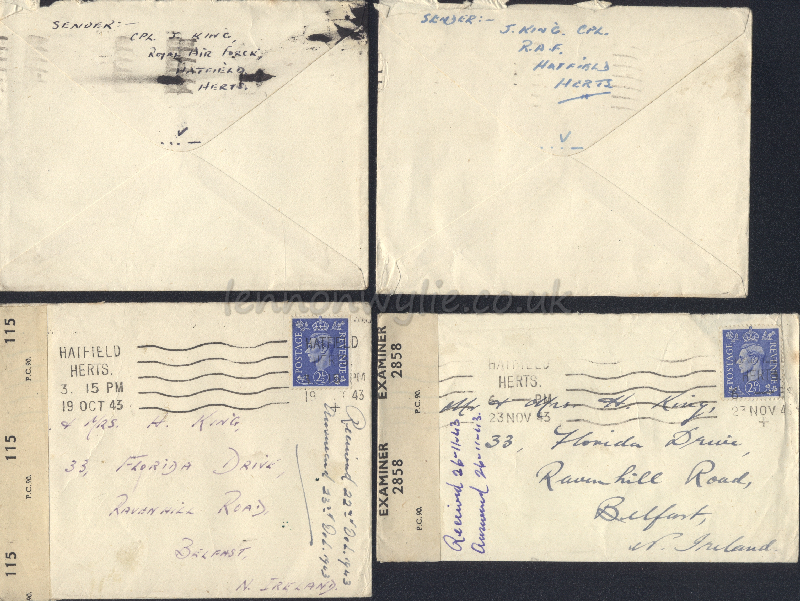 SENDER:-
CPL J. KING,
ROYAL AIR FORCE,
HATFIELD
HERTS.
...V_
SENDER:-
J. KING. CPL.
R.A.F.
HATFIELD
HERTS
...V_
lennonwylie.co.uk
115
P.C. 90.
115
P.C. 90.
115
HATFIELD
HERTS.
3. 15 PM
19 OCT 43
POSTAGE
REVENUE
2½D
& MRS. H. KING,
33, FLORIDA DRIVE,
RAVENHILL ROAD,
BELFAST,
N. IRELAND.
Received 22nd Oct. 1943
Answered 23rd Oct. 1943
EXAMINER
2858
P.C. 90.
EXAMINER
2858
P.C. 90.
HATFIELD
HERTS.
PM
23 NOV 43
POSTAGE
REVENUE
23 NOV 4
Mr & Mrs H. King,
33, Florida Drive,
Ravenhill Road,
Belfast,
N. Ireland.
Received 26-11-43
Answered 26-11-43